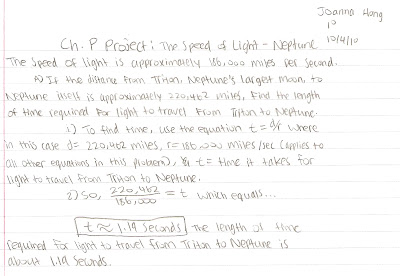 Joanna Hang
10
10/4/10
Ch. P Project: The Speed of Light - Neptune
The Speed of light is approximately 186,000 miles per second.
A) If the distance from Triton, Neptune's largest moon, to
Neptune itself is approximately 220,462 miles, find the length
of time required for light to travel from Triton to Neptune.
1) To find time, use the equation t = d/r where
in this case d= 220,462 miles, r= 186,000 miles/sec (applies to
all other equations in this problem), & t= time it takes for
light to travel from Triton to Neptune.
2) So, 220,462/186,000 = t which equals...
t ≈ 1.19 seconds The length of time
required for light to travel from Triton to Neptune is
about 1.19 seconds.